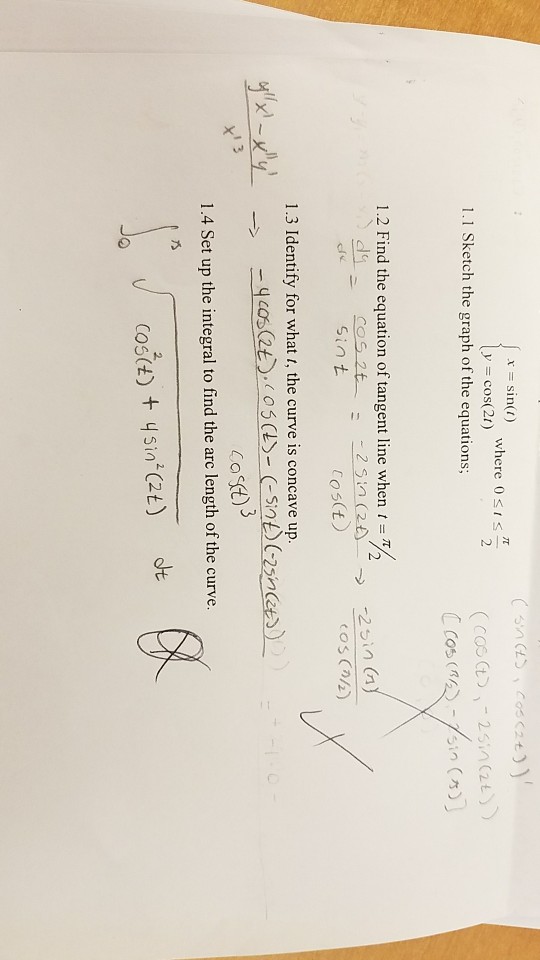 x = sin(t)
y = cos(2t)
where 0 ≤ t ≤ π/2
(sin(t), cos(2t))'
(cos(t), -2sin(2t))
[cos(π/2), -2sin(π)]
1.1 Sketch the graph of the equations;
1.2 Find the equation of tangent line when t = π/2
dy/dx = cos2t/sint = -2sin(2t)/cos(t) → -2sin(π)/cos(π/2)
1.3 Identify for what t, the curve is concave up.
y''x' - x''y'/x'3 → -4cos(2t)·cos(t) - (-sint)(-2sin(2t))/cos(t)3
1.4 Set up the integral to find the arc length of the curve.
∫0 π √cos2(t) + 4sin2(2t) dt